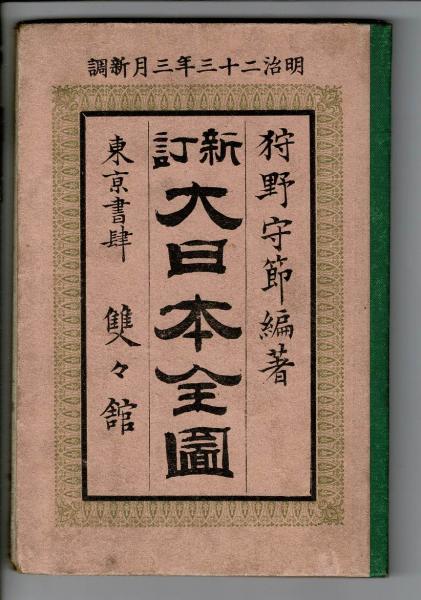 明治二十三年三月新調
狩野守節編著
新訂
大日本全圖
東京書肆 雙々舘